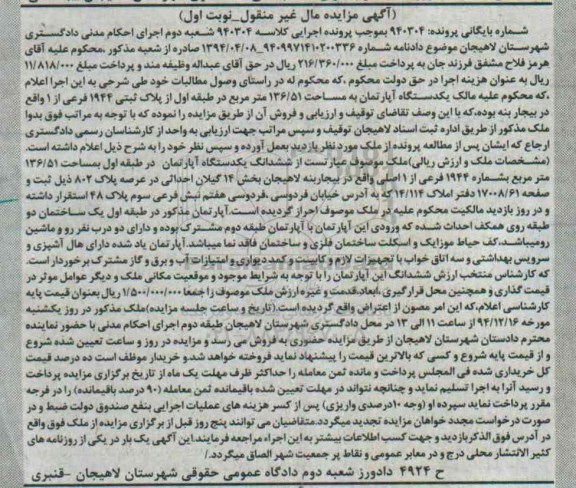 (آگهی مزایده مال غیر منقول_نوبت اول)
شماره بایگانی پرونده: ۹۴۰۳۰۴ بموجب پرونده اجرایی کلاسه ۹۴۰۳۰۴ شعبه دوم اجرای احکام مدنی دادگستری
شهرستان لاهیجان موضوع دادنامه شماره ۹۴۰۹۹۷۱۴۱۰۲۰۰۳۳۶_۱۳۹۴/۰۴/۰۸ صادره از شعبه مذکور ،محکوم علیه آقای
هرمز فلاح مشفق فرزند جان به پرداخت مبلغ ۲۱۶/۳۶۰/۰۰۰ ریال در حق آقای عبداله وظیفه مند و پرداخت مبلغ ۱۱/۸۱۸/۰۰۰
ریال به عنوان هزینه اجرا در حق دولت محکوم ،که محکوم له در راستای وصول مطالبات خود طی شرحی به این اجرا اعلام
،که محکوم علیه مالک یکدستگاه آپارتمان به مساحت ۱۳۶/۵۱ متر مربع در طبقه اول از پلاک ثبتی ۱۹۴۴ فرعی از ۱ واقع
در بیجار بنه بوده،که با این وصف تقاضای توقیف و ارزیابی و فروش آن از طریق مزایده را نموده که با توجه به مراتب فوق بدوا
ملک مذکور از طریق اداره ثبت اسناد لاهیجان توقیف و سپس مراتب جهت ارزیابی به واحد از کارشناسان رسمی دادگستری
ارجاع که ایشان پس از مطالعه پرونده از ملک مورد نظر بازدید بعمل آورده و سپس نظر خود را به شرح ذیل اعلام داشته است.
(مشخصات ملک و ارزش ریالی)ملک موصوف عبارتست از ششدانگ یکدستگاه آپارتمان در طبقه اول بمساحت ۱۳۶/۵۱
متر مربع بشماره ۱۹۴۴ فرعی از ۱ اصلی واقع در بیجاربنه لاهیجان بخش ۱۴ گیلان احداثی در عرصه پلاک ۸۰۲ ذیل ثبت و
صفحه ۱۷۰۰۸/۶۱ دفتر املاک ۱۴/۱۱۴ که به آدرس خیابان فردوسی ،فردوسی هفتم نبش فرعی سوم پلاک ۴۸ استقرار داشته
و در روز بازدید مالکیت محکوم علیه در ملک موصوف احراز گردیده است.آپارتمان مذکور در طبقه اول یک ساختمان دو
طبقه روی همکف احداث شده که ورودی این آپارتمان با آپارتمان طبقه دوم مشترک بوده و دارای دو درب نفر رو و ماشین
رومیباشد،کف حیاط موزائیک و اسکلت ساختمان فلزی و ساختمان فاقد نما میباشد. آپارتمان یاد شده دارای هال آشپزی و
سرویس بهداشتی و سه اتاق خواب با تجهیزات لازم و کابینت و کمد دیواری و امتیازات آب و برق و گاز مشترک برخوردار است.
که کارشناس منتخب ارزش ششدانگ این آپارتمان را با توجه به شرایط موجود و موقعیت مکانی ملک و دیگر عوامل موثر در
قیمت گذاری و همچنین محل قرارگیری ،ابعاد،قدمت و غیره ارزش ملک موصوف را جمعا ۱/۵۰۰/۰۰۰/۰۰۰ ریال بعنوان قیمت پایه
کارشناسی اعلام،که این امر مصون از اعتراض واقع گردیده است.(تاریخ و ساعت جلسه مزایده)ملک مذکور در روز یکشنبه
مورخه ۹۴/۱۲/۱۶ از ساعت ۱۱ الی ۱۳ در محل دادگستری شهرستان لاهیجان طبقه دوم اجرای احکام مدنی با حضور نماینده
محترم دادستان شهرستان لاهیجان از طریق مزایده حضوری به فروش می رسد و مزایده در روز و ساعت تعیین شده شروع
و از قیمت پایه شروع و کسی که بالاترین قیمت را پیشنهاد نماید فروخته خواهد شد.و خریدار موظف است ده درصد قیمت
کل خریداری شده فی المجلس پرداخت و مانده ثمن معامله را حداکثر ظرف مهلت یک ماه از تاریخ برگزاری مزایده پرداخت
و رسید آنرا به اجرا تسلیم نماید و چنانچه نتواند در مهلت تعیین شده باقیمانده ثمن معامله (۹۰ درصد باقیمانده) را در فرجه
مقرر پرداخت نماید سپرده او (وجه ۱۰درصدی واریزی) پس از کسر هزینه های عملیات اجرایی بنفع صندوق دولت ضبط و در
صورت درخواست مجدد خواهان مزایده تجدید میگردد.متقاضیان می توانند پنج روز قبل از برگزاری مزایده از ملک فوق واقع
در آدرس فوق الذکر بازدید و جهت کسب اطلاعات بیشتر به این اجراء مراجعه فرمایند.این آگهی یک بار در یکی از روزنامه های
کثیر الانتشار محلی درج و در معابر عمومی و نقاط پر جمعیت شهر الصاق میگردد./
ح ۴۹۲۴ دادورز شعبه دوم دادگاه عمومی حقوقی شهرستان لاهیجان -قنبری